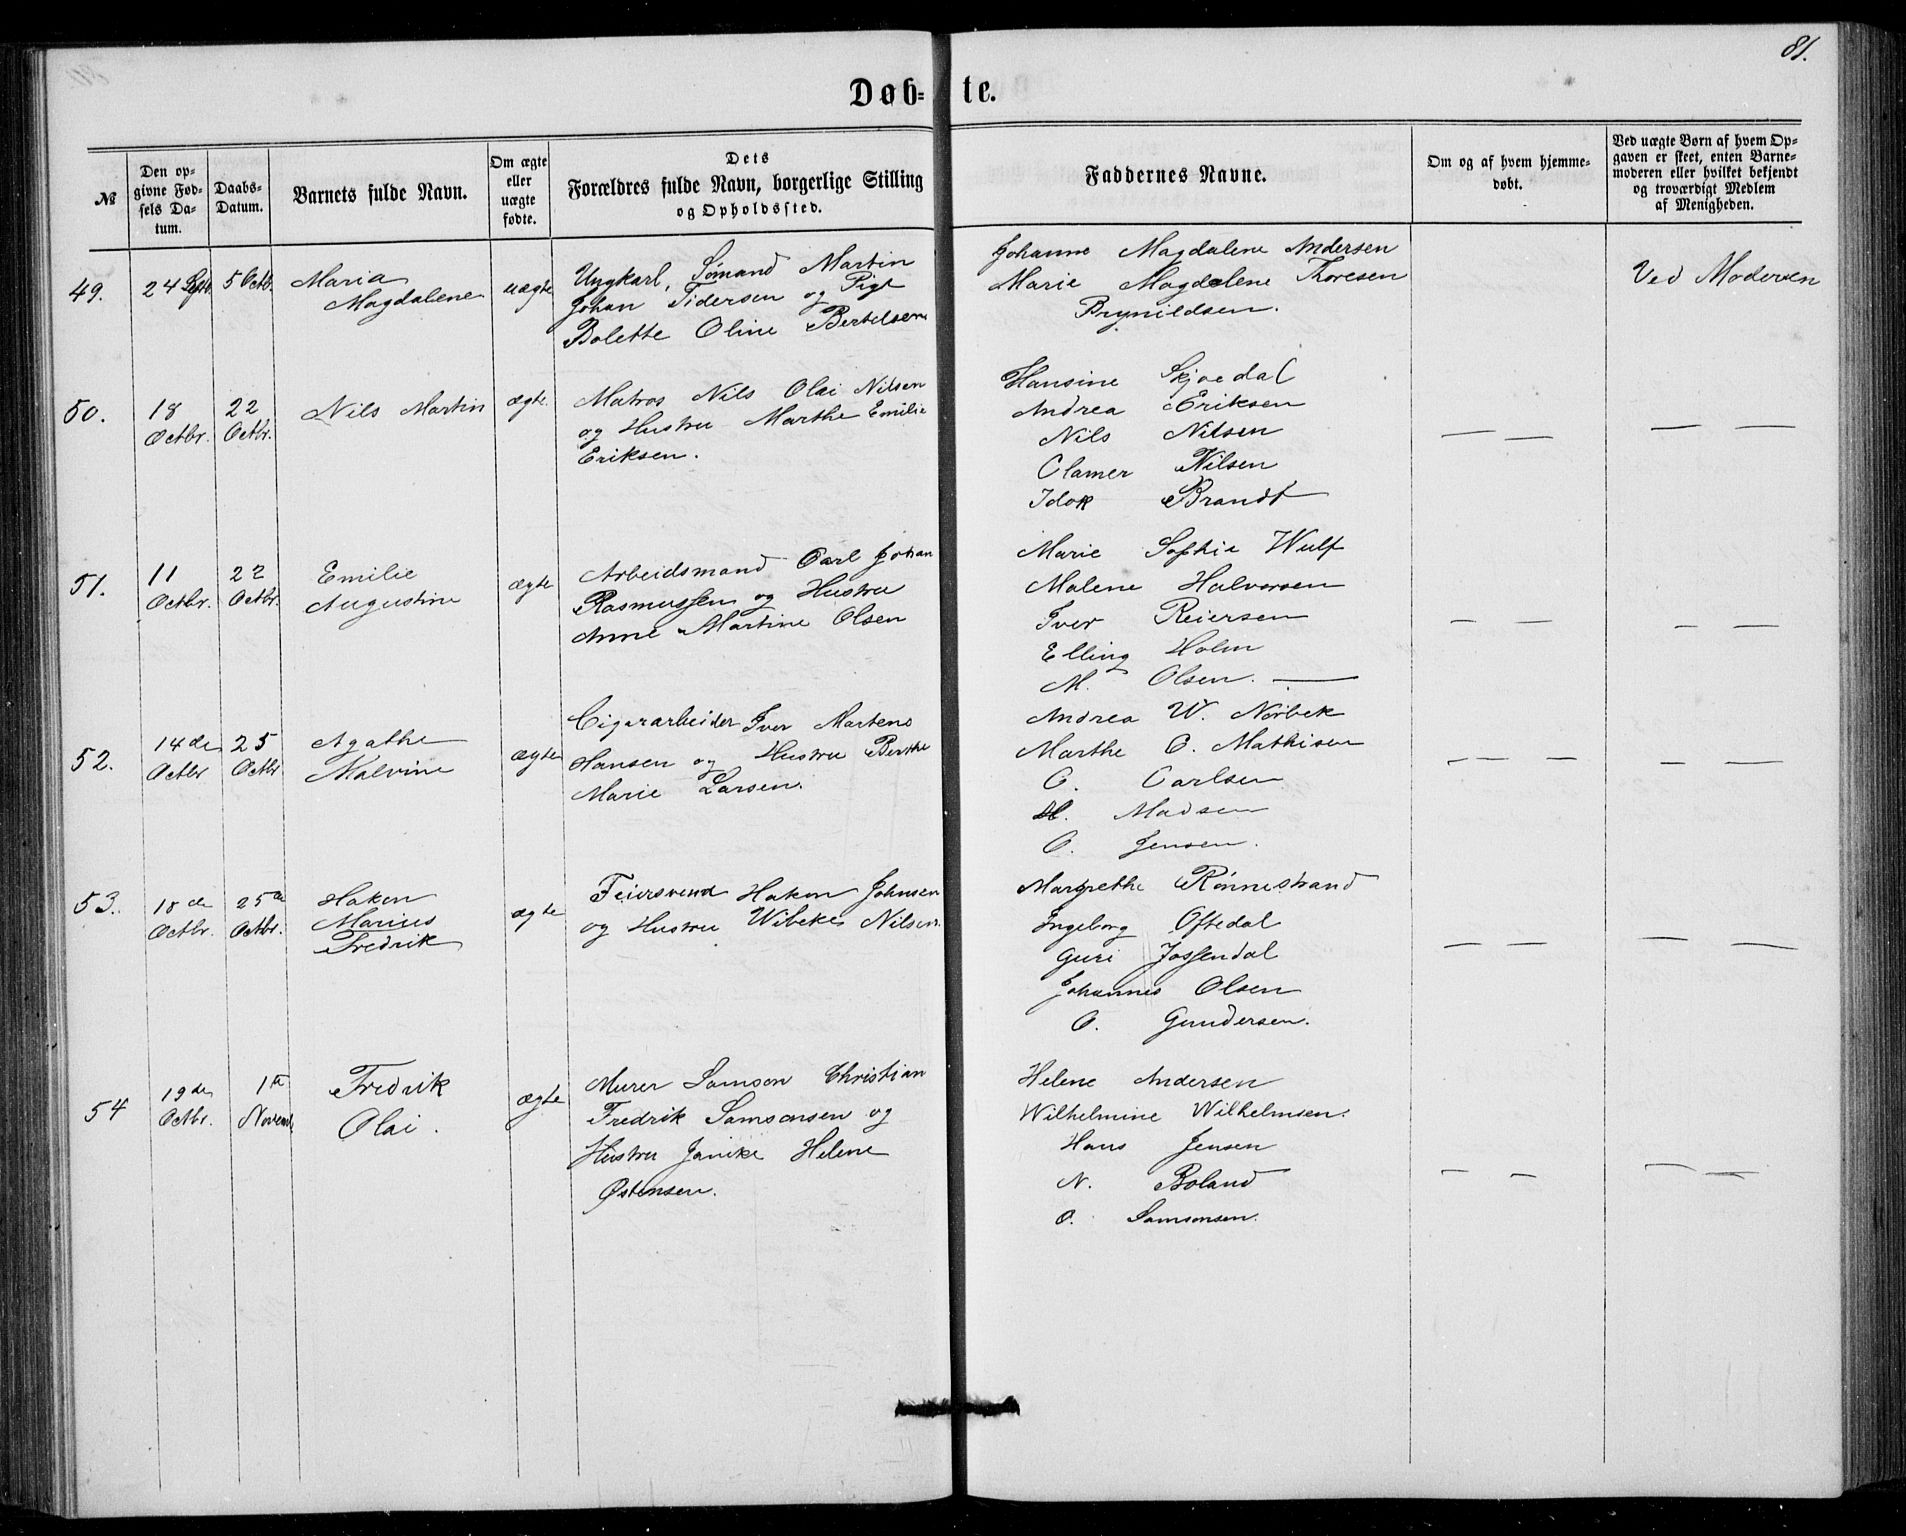 81.
Døb= te.
№
Den op-
givne Fød-
sels Da-
tum.
Daabs-
Datum.
Barnets fulde Navn.
Om ægte
eller
uægte
fødte.
Dets
Forældres fulde Navn, borgerlige Stilling
og Opholdssted.
Faddernes Navne.
Om og af hvem hjemme-
døbt.
Ved uægte Børn af hvem Op-
gaven er skeet, enten Barne-
moderen eller hvilket bekjendt
og troværdigt Medlem
af Menigheden.
49.
24 Septb.
5 Octb.
Maria
Magdalene
uægte
Ungkarl, Sømand Martin
Johan Tidersen og Pige
Bolette Oline Bertelsen
Johanne Magdalene Andersen
Marie Magdalene Thoresen
Brynildsen.
Ved Moderen
50.
18
Octbr.
22
Octbr.
Nils Martin
ægte.
Matros Nils Olai Nilsen
og Hustru Marthe Emilie
Eriksen.
Hansine Skjoedal
Andrea Eriksen
Nils Nilsen
Olamer Nilsen
Brandt
— —
— —
51.
11
Octbr.
22
Octbr.
Emilie
Augustine
ægte
Arbeidsmand Carl Johan
Rasmussen og Hustru
Anne Martine Olsen
Marie Sophie Wulf
Malene Halvorsen
Iver Reiersen
Elling Holm
M. Olsen. —
— —
— —
52.
14de
Octbr
25
Octbr
Agathe
Malvine
ægte
Cigararbeider Iver Martens
Hansen og Hustru Berthe
Marie Larsen.
Andrea W. Norbek
Marthe O. Mathisen
C. Carlsen
H. Madsen
O. Jensen.
— — —
— —
53.
18de
Octbr.
25de
Octbr.
Hakon
Marius
Fredrik
ægte
Feiersvend Hakon Johnsen
og Hustru Wibeke Nilsen.
Margrethe Rønnestrand
Ingeborg Oftedal
Guri Jossendal
Johannes Olsen
O. Gundersen.
— — —
— —
54
19de
Octbr.
1te
Novemb.
Fredrik
Olai.
ægte
Murer Samson Christian
Fredrik Samsonsen og
Hustru Janike Helene
Østensen.
Helene Andersen
Wilhelmine Wilhelmsen.
Hans Jensen
N. Boland
O. Samsonsen.
— —
— —